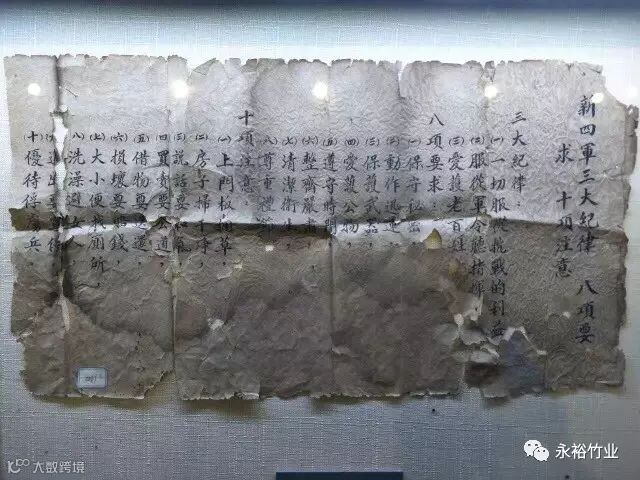 新四軍三大紀律 八項要
求 十項注意
三大紀律：
(一)一切服從抗戰的利益
(二)服從軍令聽指揮，
(三)愛護老百姓
八項要求：
(一)保守秘密，
(二)動作迅速
(三)保護武器，
(四)愛護公物
(五)遵守時間
(六)整齊嚴肅
(七)清潔衛生，
(八)尊重禮節
十項注意：
(一)上門板捆草，
(二)房子掃乾淨，
(三)說話要和氣
(四)買賣要公道
(五)借物要送還，
(六)損壞要賠錢，
(七)大小便找廁所，
(八)洗澡避女人，
(十)優待俘虜兵
永裕竹业
大数跨境